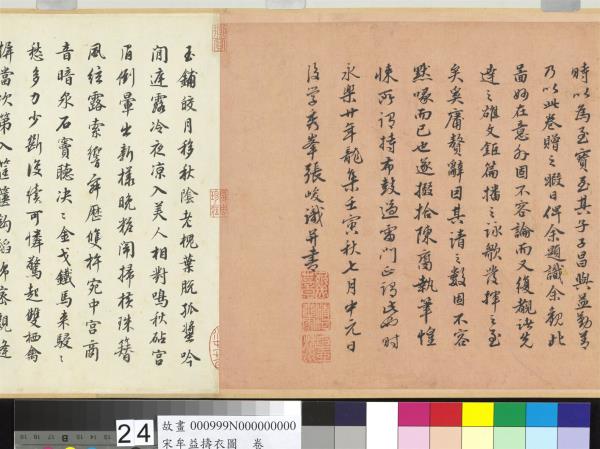 時以為至寶至其子子昌與益勤善
乃以此卷贈之暇日俾余題識余觀此
圖妙在意外固不容論而又復觀諸先
達之雄文鉅篇播之詠歌發揮之至
矣奚庸贅辭因其請之數固不容
默喙而已也遂掇拾陳腐執筆惶
悚所謂持布鼓過雷門正謂此爾時
永樂廿年龍集壬寅秋七月中元日
後學秀峯張峻識并書
玉鋪皎月移秋陰老槐葉脫孤螿吟
閒庭露冷夜涼入美人相對鳴秋砧宮
眉倒暈出新樣晚粧鬧掃橫珠簪
風往露索響牢歷雙杵宛中宮商
音暗泉石竇聽決決金戈鐵馬来駸駸
愁多力少斷復續可憐驚起雙栖禽
擣當次第入筐篋
24
故畫 000999N000000000
宋牟益擣衣圖 卷